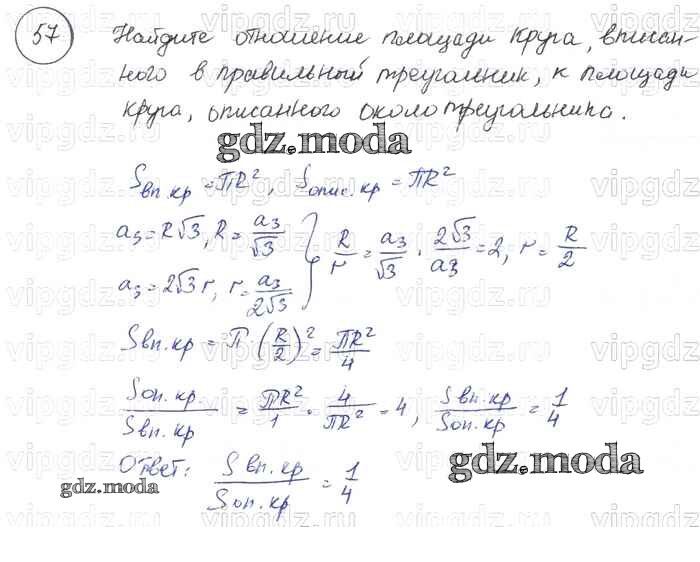 57 Найдите отношение площади круга, вписан-
ного в правильный треугольник, к площади
круга, описанного около треугольника.
gdz.moda
Sвп.кр = πR², Sопис.кр = πR²
a₃ = R√3, R = a₃/√3
a₃ = 2√3 r, r = a₃/2√3 } R/r = a₃/√3 · 2√3/a₃ = 2, r = R/2
Sвп.кр = π · (R/2)² = πR²/4
Sоп.кр./Sвп.кр = πR²/1 · 4/πR² = 4, Sвп.кр/Sоп.кр = 1/4
Ответ: Sвп.кр/Sоп.кр = 1/4
gdz.moda
gdz.moda
vipgdz.ru